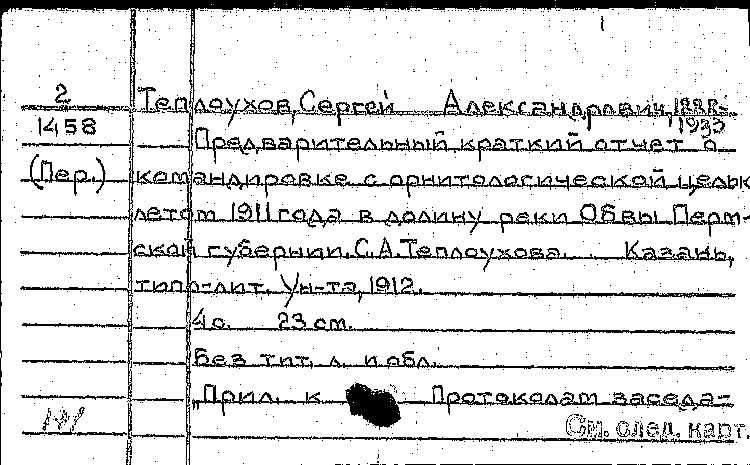 2
Теплоухов, Сергей Александрович, 1888-
1458
1933
Предварительный краткий отчет о
(Пер.)
командировке с орнитологической целью
летом 1911 года в долину реки Обвы Перм-
ской губернии. С.А.Теплоухова. Казань,
типо-лит. Ун-та, 1912.
4 с. 23 см.
Без тит. л. и обл.
"Прил. к Протоколам заседа-
См. след. карт.